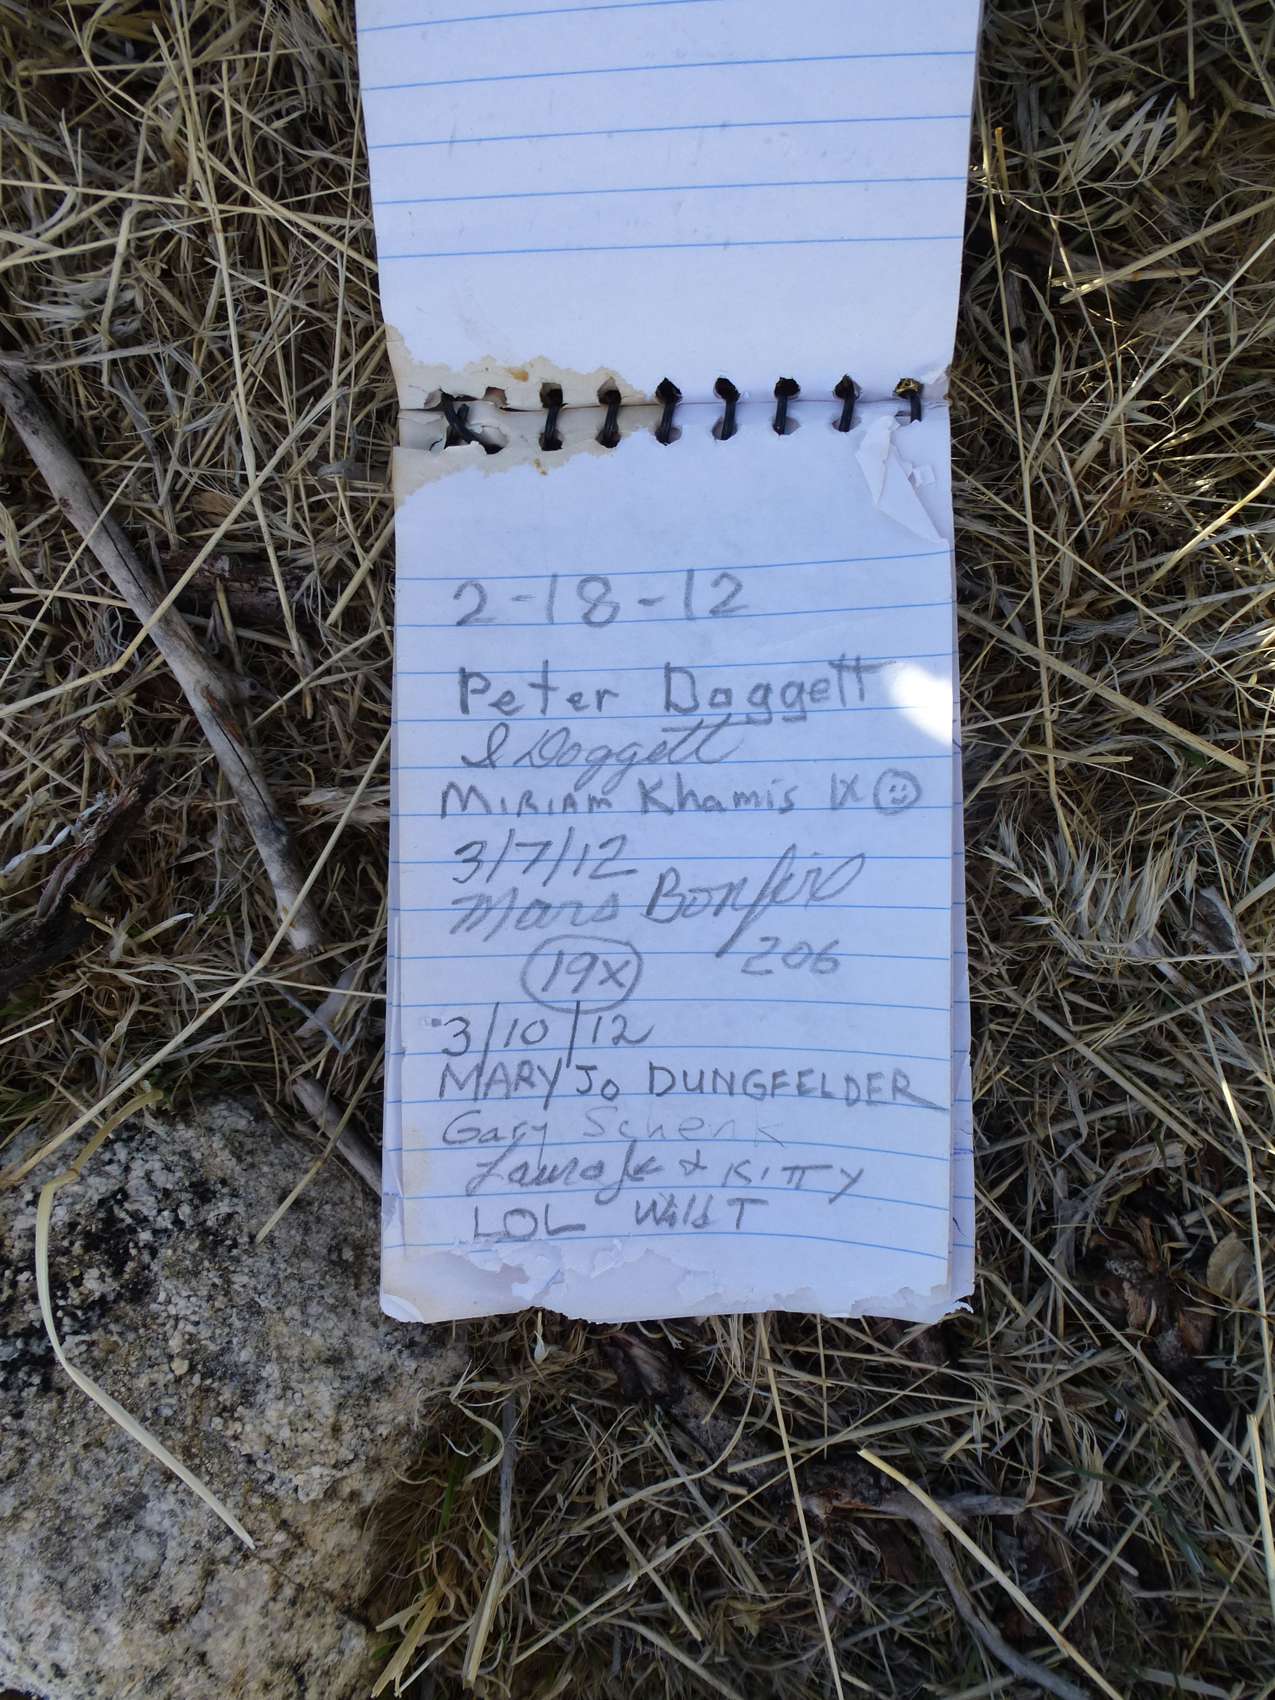 2-18-12
Peter Doggett
I Doggett
MIRIAM Khamis 1X
3/7/12
Mars Bonfire
206
19x
3/10/12
MARY JO DUNGFELDER
Gary Schenk
& KITTY
LOL Wild T